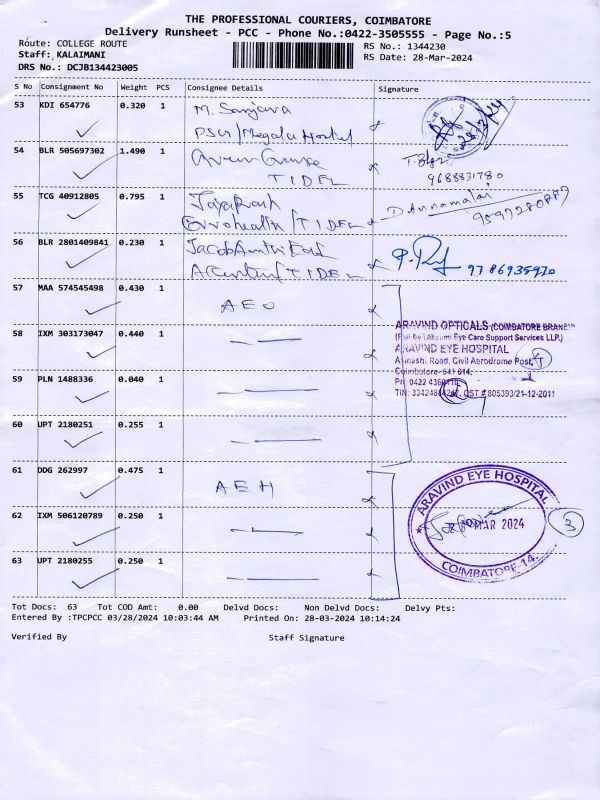 THE PROFESSIONAL COURIERS, COIMBATORE
Delivery Runsheet - PCC - Phone No.:0422-3505555 - Page No.:5
Route: COLLEGE ROUTE
RS No.: 1344230
Staff: KALAIMANI
RS Date: 28-Mar-2024
DRS No.: DCJB134423005
S No Consignment No Weight PCS Consignee Details Signature
53 KDI 654776 0.320 1 M. Sanjana
PSG/Megala Hostel
54 BLR 505697302 1.490 1
TIDEL
9688831780
55 TCG 40912805 0.795 1 Jayaprash
/TIDEL D. Annamalai
56 BLR 2801409841 0.230 1
/TIDEL 9786935970
57 MAA 574545498 0.430 1 AEO
ARAVIND OPTICALS (COIMBATORE BRANCH)
58 IXM 303173047 0.440 1
(Run by Lakshmi Eye Care Support Services LLP.)
ARAVIND EYE HOSPITAL
Avinash. Road, Civil Aerodrome Post,
Coimbatore-641 014.
59 PLN 1488336 0.040 1
60 UPT 2180251 0.255 1
61 DDG 262997 0.475 1 AEH
ARAVIND EYE HOSPITAL
MAR 2024
COIMBATORE-14.
3
62 IXM 506120789 0.250 1
63 UPT 2180255 0.250 1
Tot Docs: 63 Tot COD Amt: 0.00 Delvd Docs: Non Delvd Docs: Delvy Pts:
Entered By :TPCPCC 03/28/2024 10:03:44 AM Printed On: 28-03-2024 10:14:24
Verified By Staff Signature